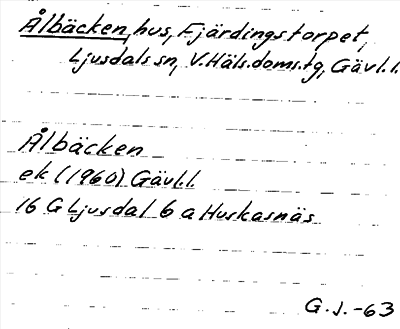 Ålbäcken, hus, Fjärdingstorpet,
Ljusdals sn, V.Häls.doms.tg, Gävl.l.
Ålbäcken
ek (1960) Gävl.l.
16 G Ljusdal 6 a Huskasnäs
G.J.-63